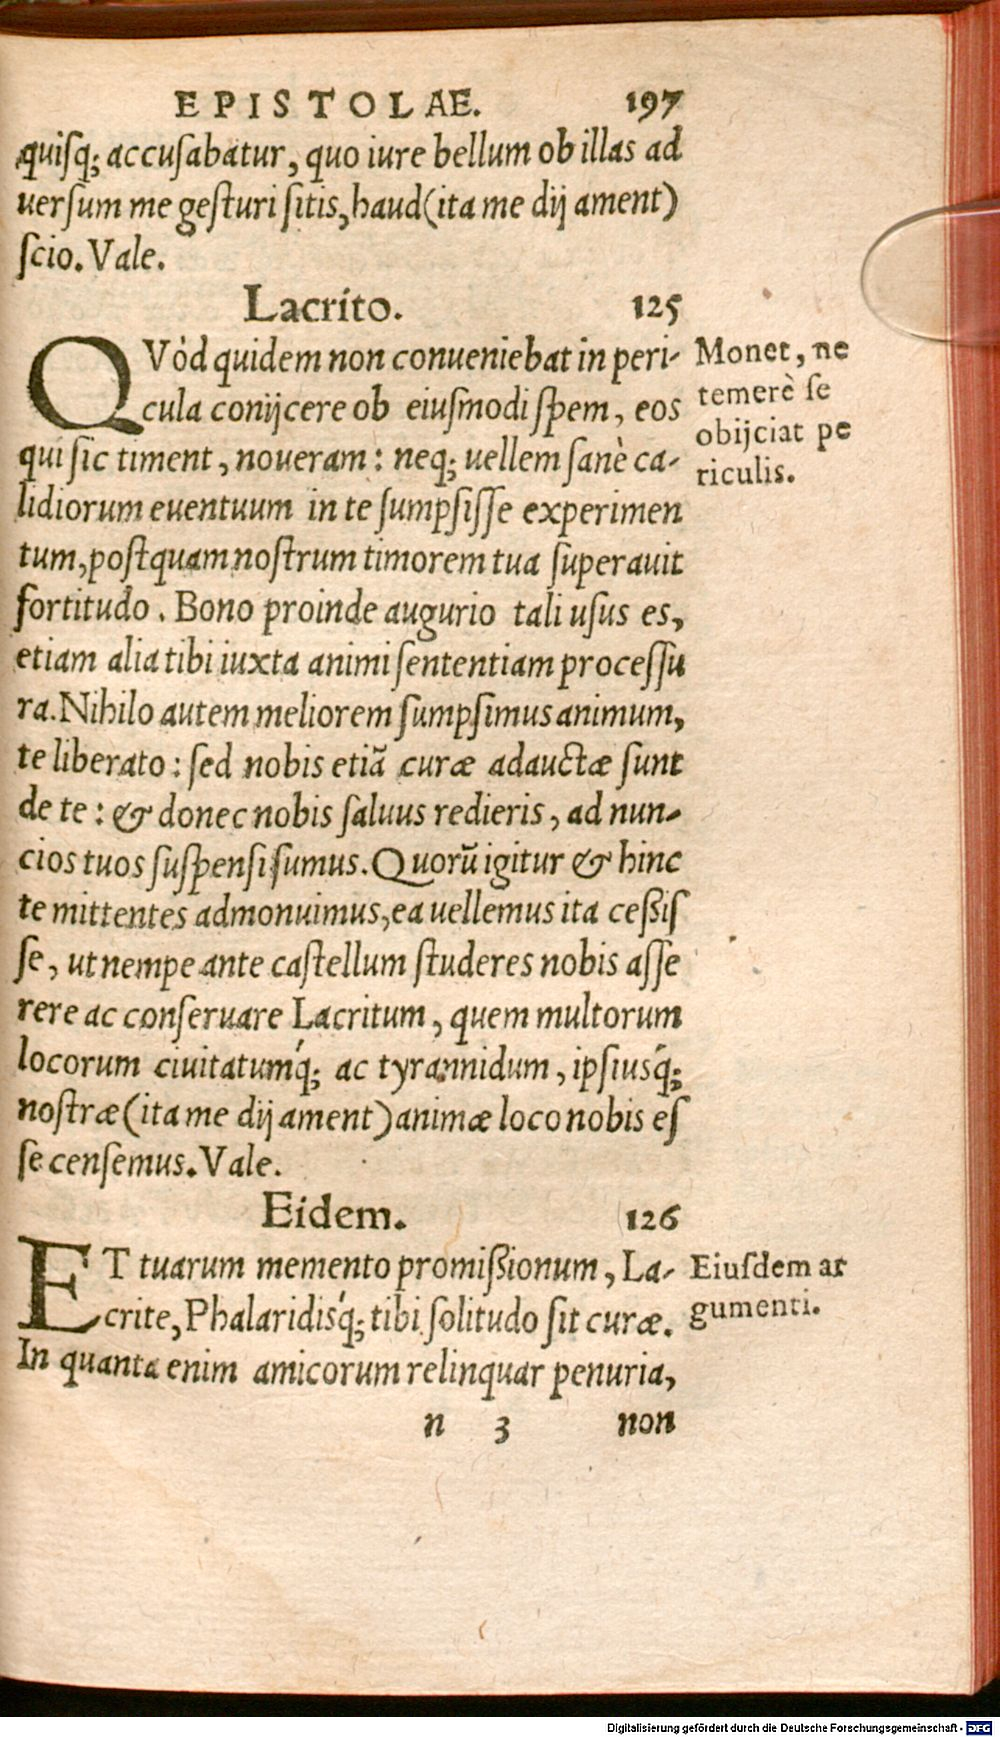 EPISTOLAE. 197
quiſq; accuſabatur, quo iure bellum ob illas ad
uerſum me geſturi ſitis, haud (ita me dij ament)
ſcio. Vale.
Lacrito. 125
QVòd quidem non conueniebat in peri-
cula conijcere ob eiuſmodi ſpem, eos
qui ſic timent, noueram: neq; uellem ſanè ca-
lidiorum euentuum in te ſumpſiſſe experimen
tum, poſtquam noſtrum timorem tua ſuperauit
fortitudo. Bono proinde augurio tali uſus es,
etiam alia tibi iuxta animi ſententiam proceſſu
ra. Nihilo autem meliorem ſumpſimus animum,
te liberato: ſed nobis etiã curæ adauctæ ſunt
de te: & donec nobis ſaluus redieris, ad nun-
cios tuos ſuſpenſi ſumus. Quorũ igitur & hinc
te mittentes admonuimus, ea uellemus ita ceßiſ
ſe, ut nempe ante caſtellum ſtuderes nobis aſſe
rere ac conſeruare Lacritum, quem multorum
locorum ciuitatumq́; ac tyrannidum, ipſiusq́;
noſtræ (ita me dij ament) animæ loco nobis eſ
ſe cenſemus. Vale.
Monet, ne
temerè ſe
obijciat pe
riculis.
Eidem. 126
ET tuarum memento promißionum, La-
crite, Phalaridisq́; tibi ſolitudo ſit curæ.
In quanta enim amicorum relinquar penuria,
Eiuſdem ar
gumenti.
n 3 non
Digitalisierung gefördert durch die Deutsche Forschungsgemeinschaft - DFG